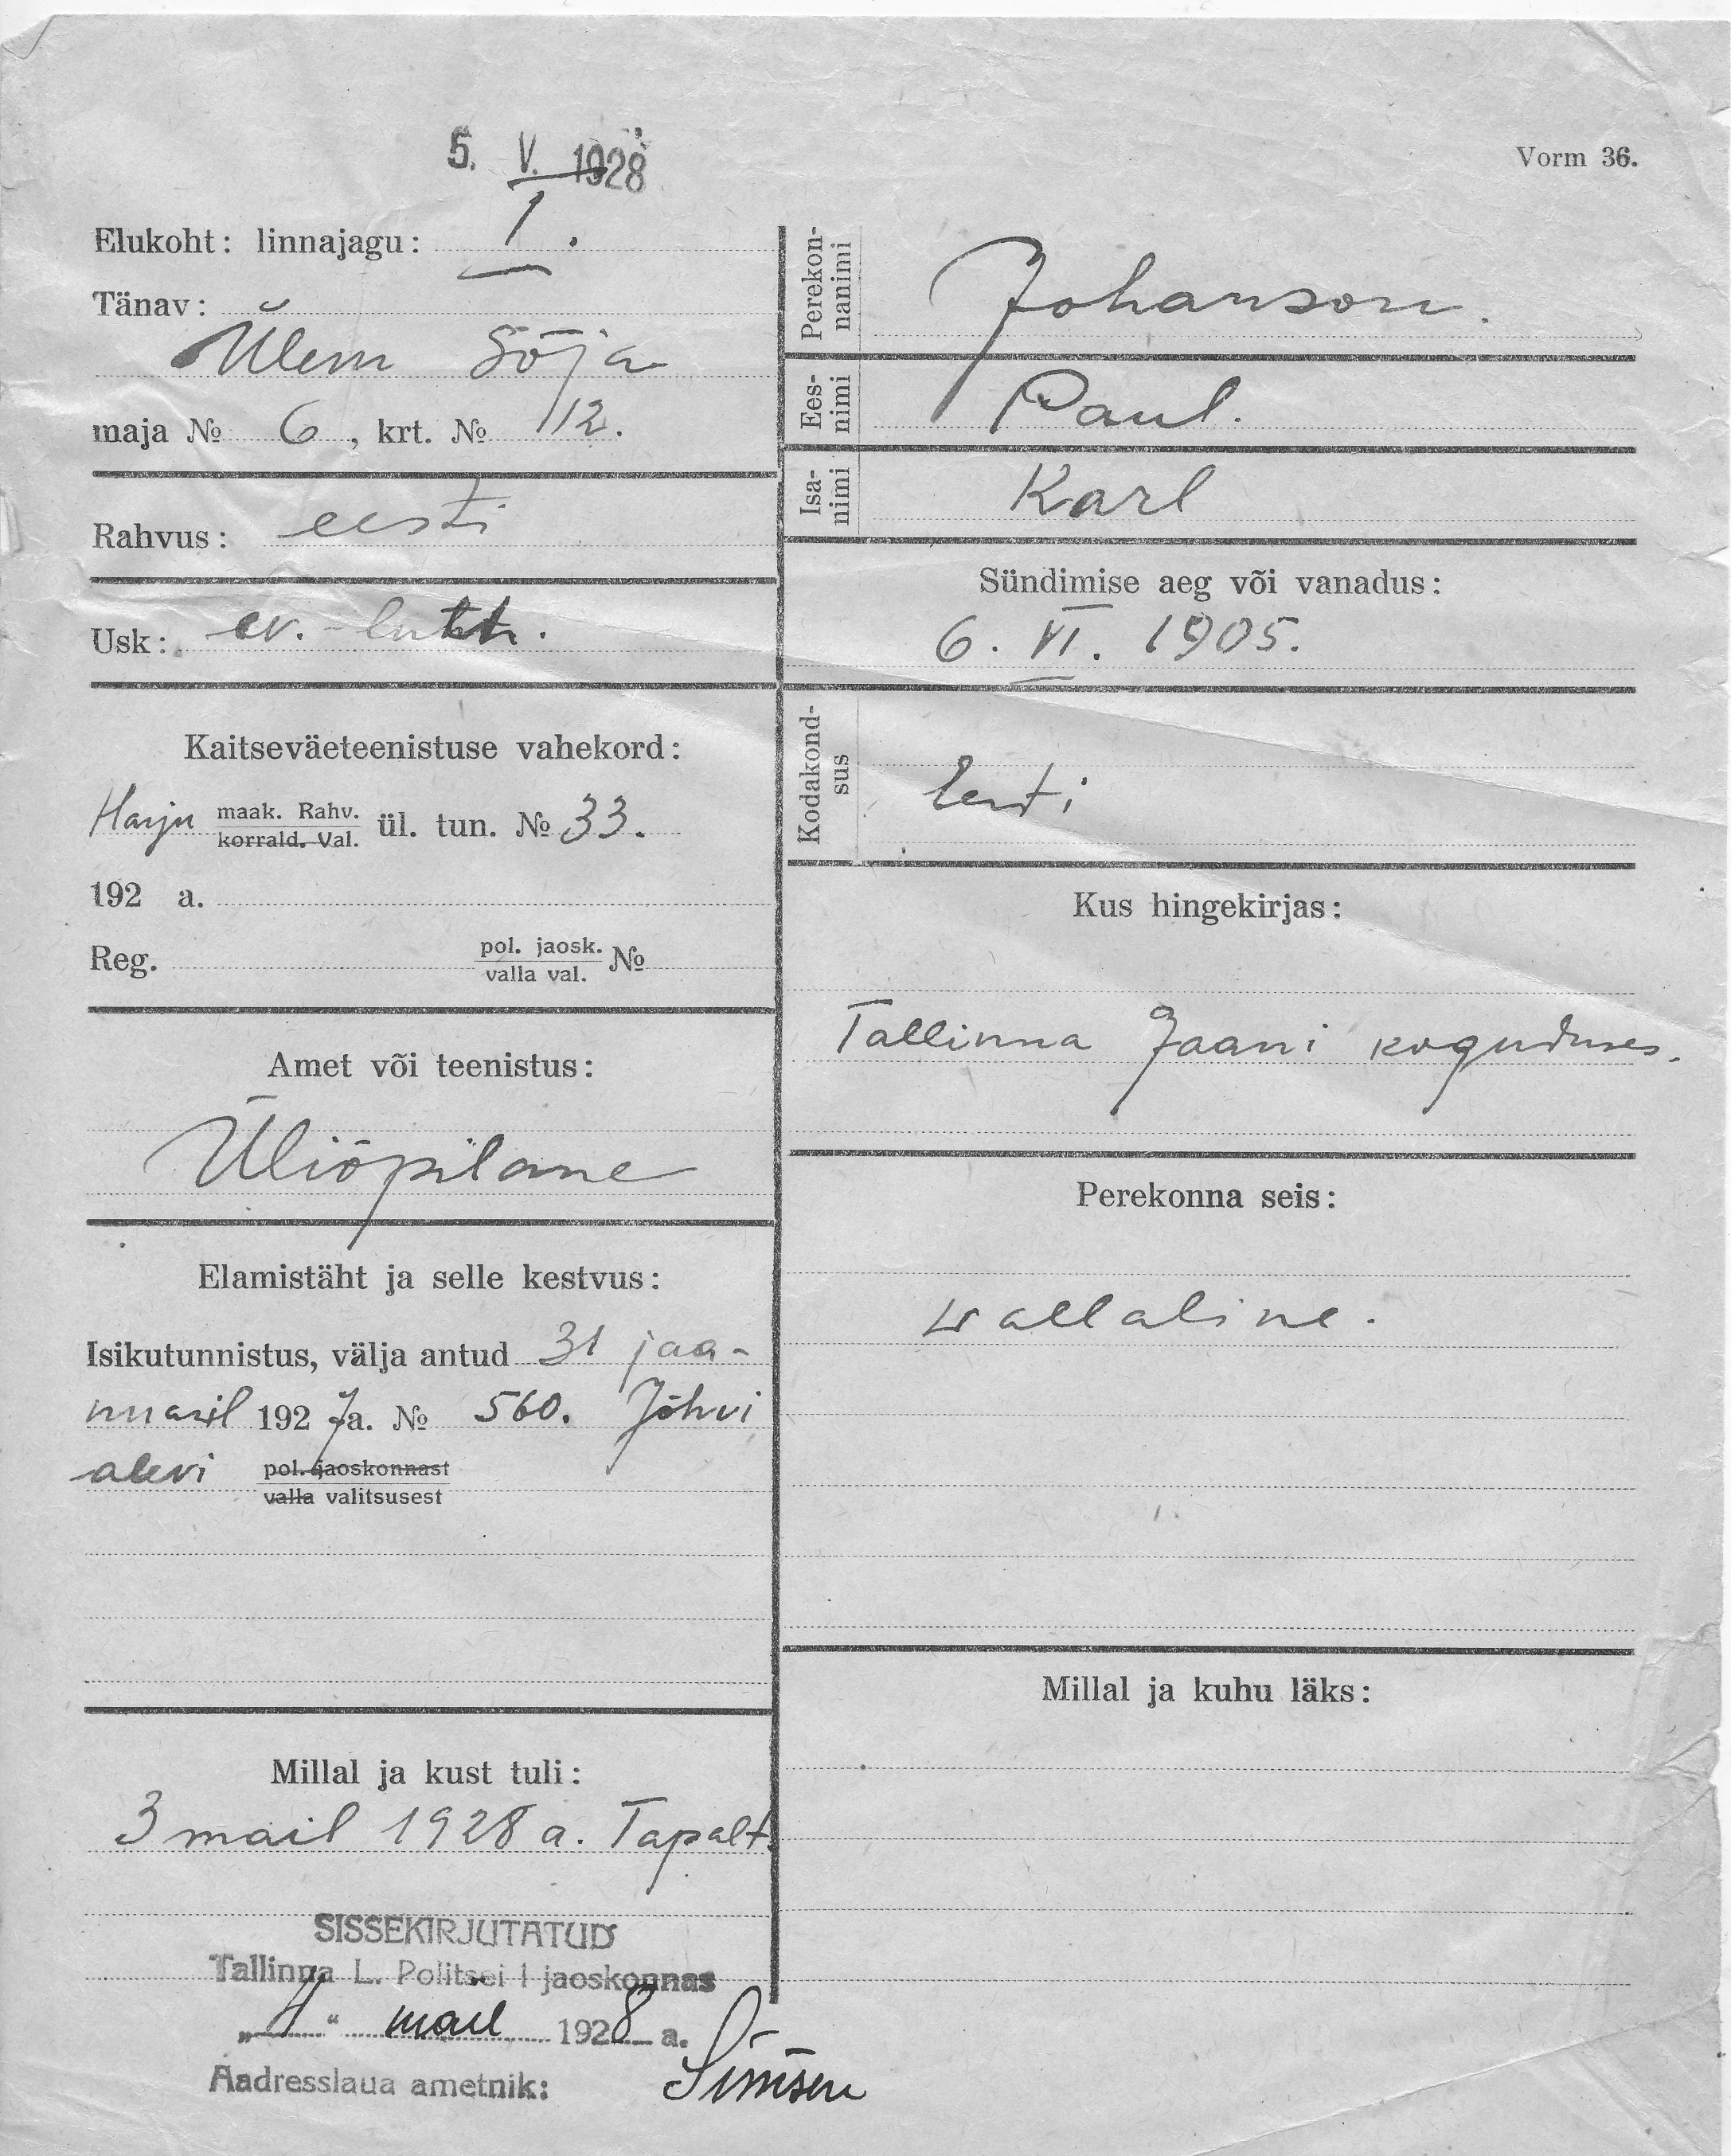 5. V. 1928
Vorm 36.
Elukoht: linnajagu: I.
Tänav:
Ülem Sõja
maja № 6, krt. № 12.
Rahvus: eesti
Usk: ev.-luth.
Kaitseväeteenistuse vahekord:
Harju maak. Rahv. ül. tun. № 33.
korrald. Val.
192 a.
Reg. pol. jaosk. №
valla val.
Amet või teenistus:
Üliõpilane
Elamistäht ja selle kestvus:
Isikutunnistus, välja antud 31 jaa-
nuaril 1927 a. № 560. Jõhvi
alevi pol. jaoskonnast
valla valitsusest
Millal ja kust tuli:
3 mail 1928 a. Tapalt.
SISSEKIRJUTATUD
Tallinna L. Politsei I jaoskonnas
"4" mail 1928 a.
Aadresslaua ametnik:
Perekon-
nanimi
Johanson.
Ees-
nimi
Paul.
Isa-
nimi
Karl
Sündimise aeg või vanadus:
6. VI. 1905.
Kodakond-
sus
Eesti
Kus hingekirjas:
Tallinna Jaani koguduses.
Perekonna seis:
wallaline.
Millal ja kuhu läks: